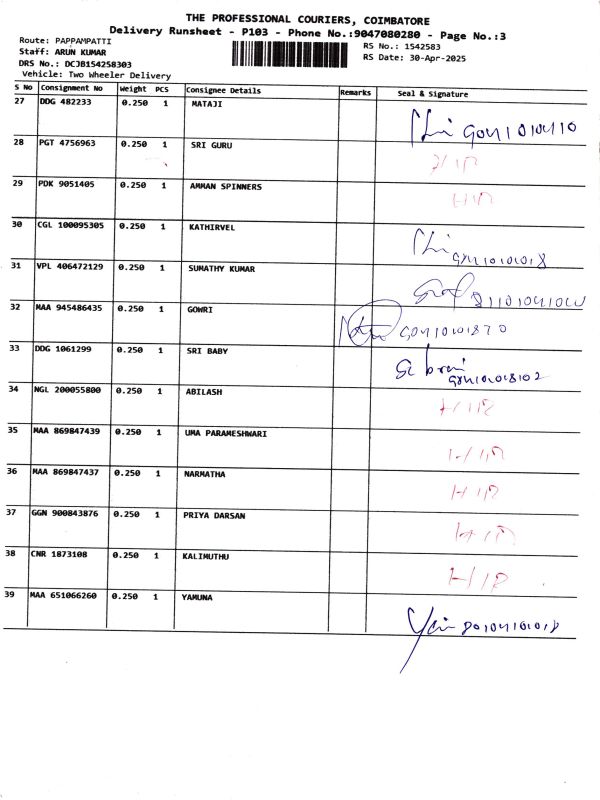 THE PROFESSIONAL COURIERS, COIMBATORE
Delivery Runsheet - P103 - Phone No.:9047080280 - Page No.:3
Route: PAPPAMPATTI
RS No.: 1542583
Staff: ARUN KUMAR
RS Date: 30-Apr-2025
DRS No.: DCJB154258303
Vehicle: Two Wheeler Delivery
S No Consignment No Weight PCS Consignee Details Remarks Seal & Signature
27 DDG 482233 0.250 1 MATAJI
28 PGT 4756963 0.250 1 SRI GURU H/P
29 PDK 9051405 0.250 1 AMMAN SPINNERS H/P
30 CGL 100095305 0.250 1 KATHIRVEL
31 VPL 406472129 0.250 1 SUMATHY KUMAR
32 MAA 945486435 0.250 1 GOWRI
33 DDG 1061299 0.250 1 SRI BABY
34 NGL 200055800 0.250 1 ABILASH H/P
35 MAA 869847439 0.250 1 UMA PARAMESHWARI H/P
36 MAA 869847437 0.250 1 NARMATHA H/P
37 GGN 900843876 0.250 1 PRIYA DARSAN H/P
38 CNR 1873108 0.250 1 KALIMUTHU H/P
39 MAA 651066260 0.250 1 YAMUNA